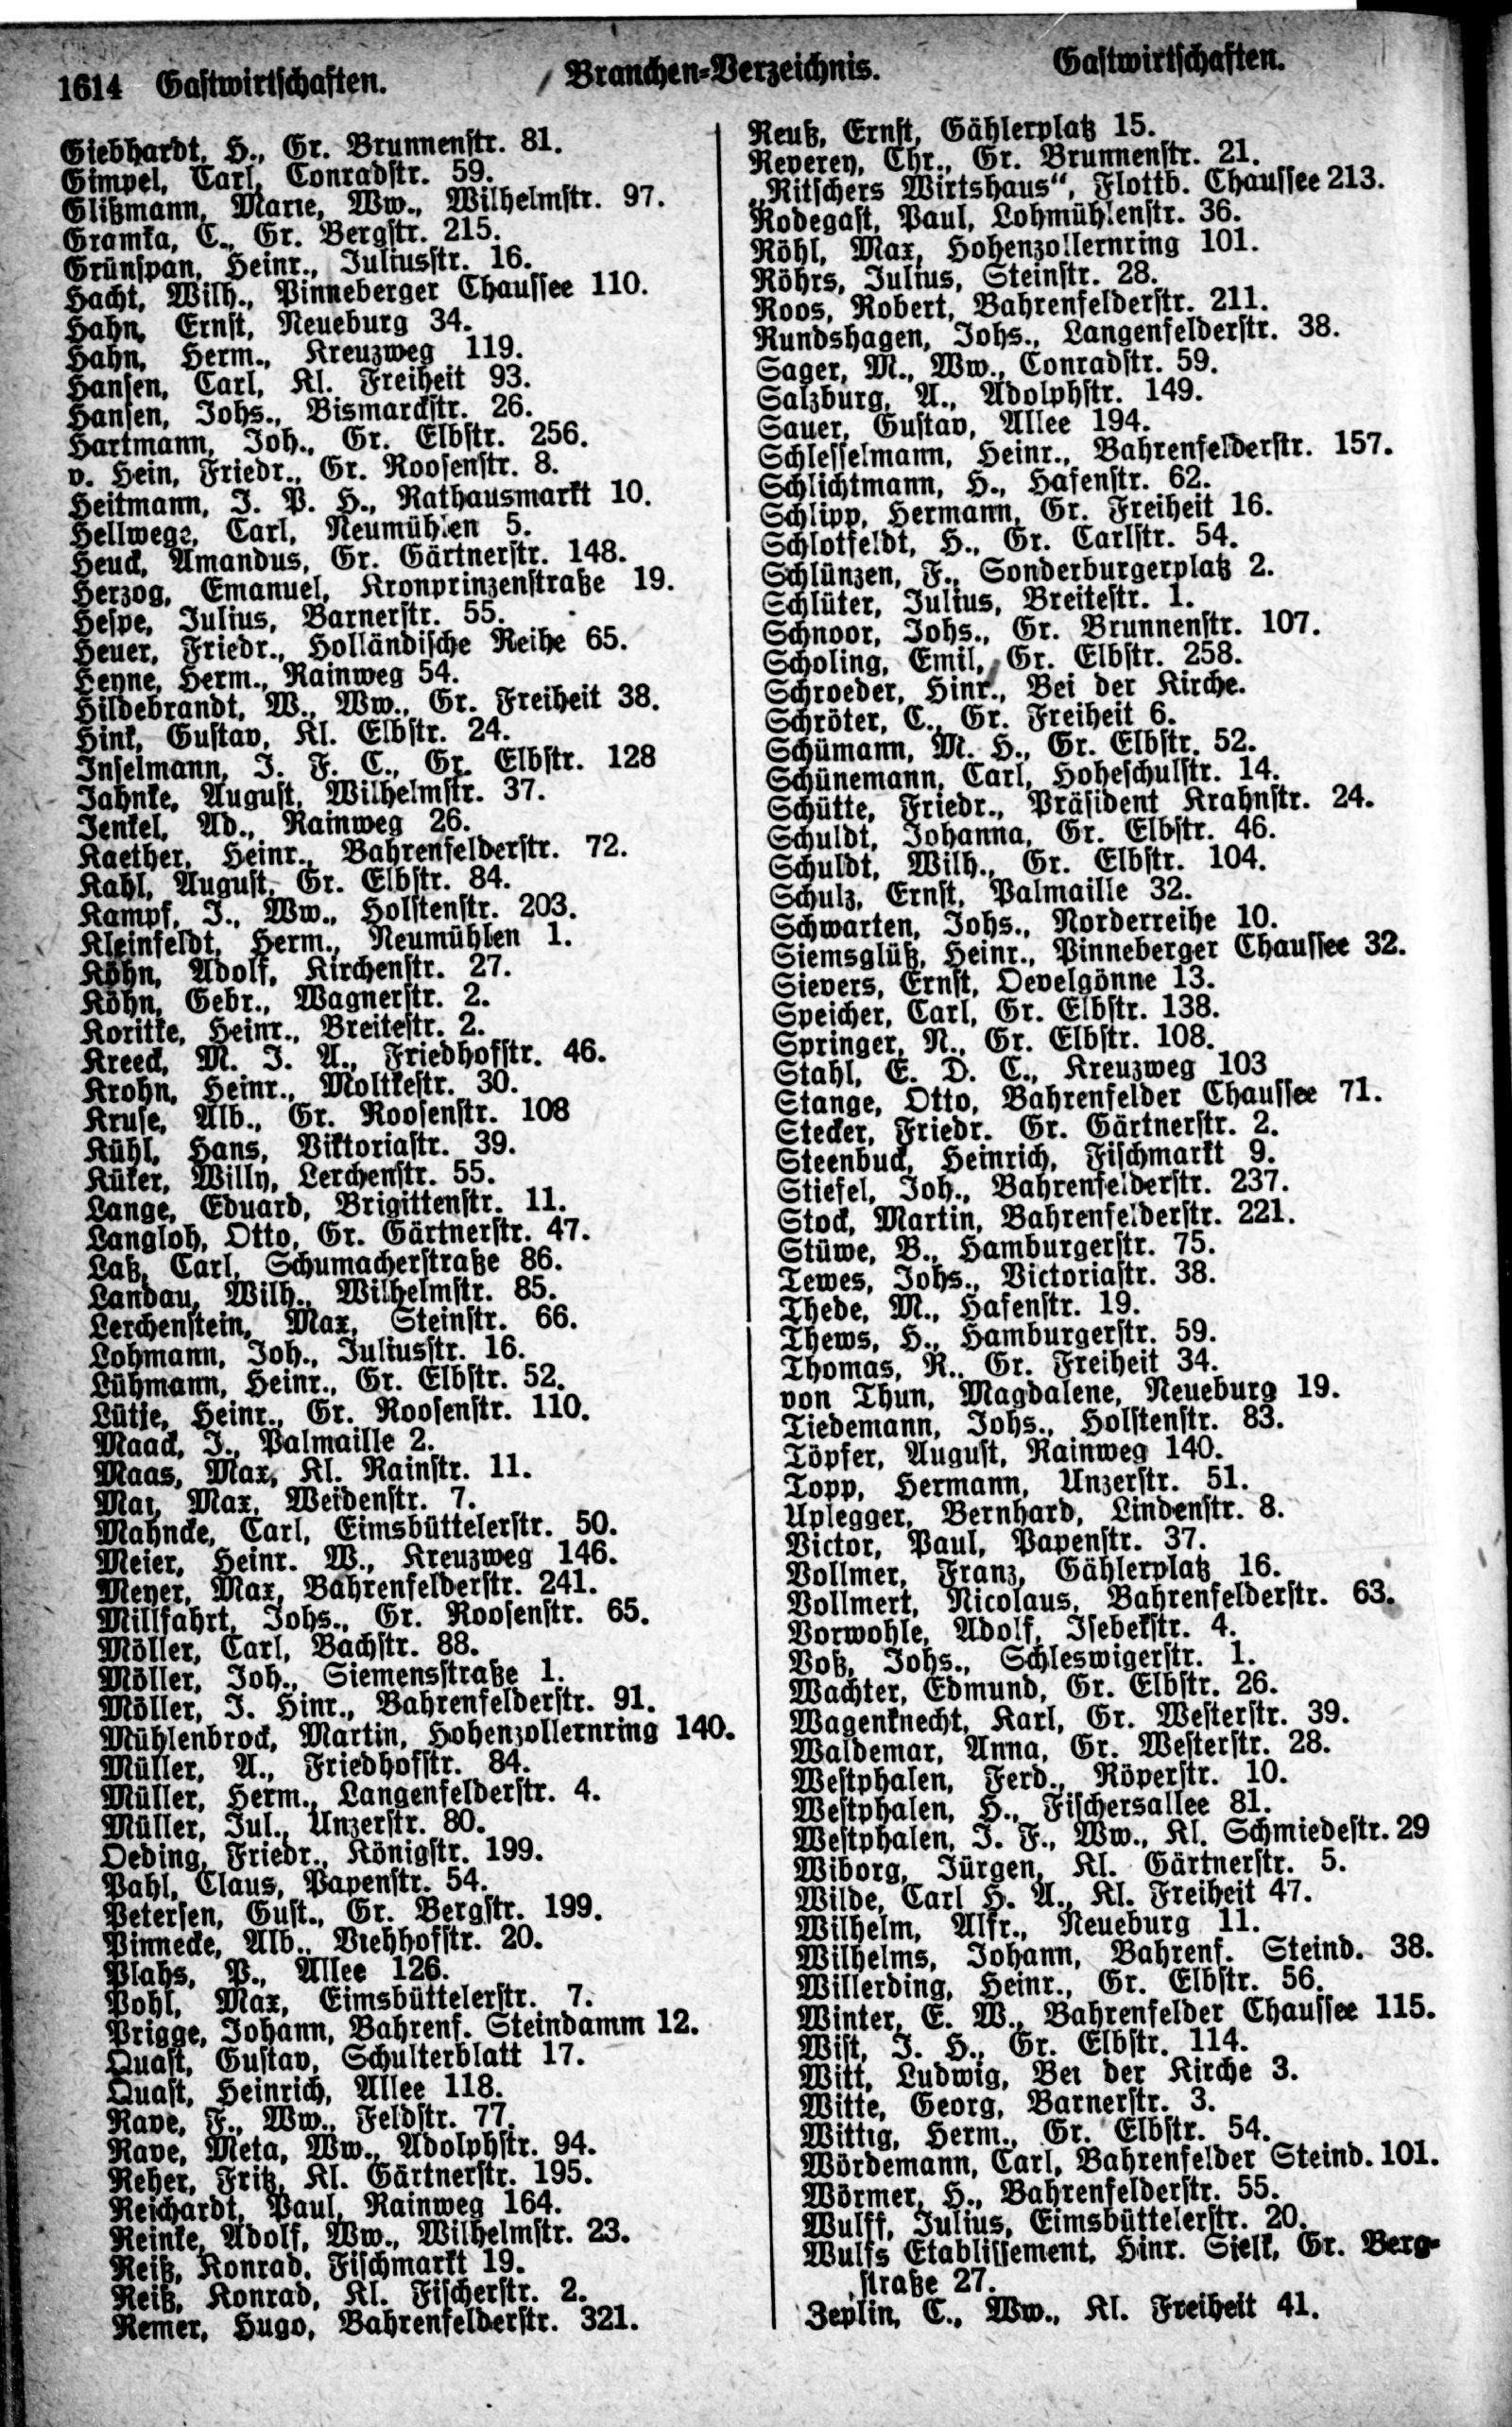 1614 Gastwirtschaften.
Branchen-Verzeichnis.
Gastwirtschaften.
Giebhardt, H., Gr. Brunnenstr. 81.
Gimpel, Carl, Conradstr. 59.
Glißmann, Marie, Ww., Wilhelmstr. 97.
Gramka, C., Gr. Bergstr. 215.
Grünspan, Heinr., Juliusstr. 16.
Hacht, Wilh., Pinneberger Chaussee 110.
Hahn, Ernst, Neueburg 34.
Hahn, Herm., Kreuzweg 119.
Hansen, Carl, Kl. Freiheit 93.
Hansen, Johs., Bismarckstr. 26.
Hartmann, Joh., Gr. Elbstr. 256.
v. Hein, Friedr., Gr. Roosenstr. 8.
Heitmann, J. P. H., Rathausmarkt 10.
Hellwege, Carl, Neumühlen 5.
Heuck, Amandus, Gr. Gärtnerstr. 148.
Herzog, Emanuel, Kronprinzenstraße 19.
Hespe, Julius, Barnerstr. 55.
Heuer, Friedr., Holländische Reihe 65.
Heyne, Herm., Rainweg 54.
Hildebrandt, W., Ww., Gr. Freiheit 38.
Hink, Gustav, Kl. Elbstr. 24.
Inselmann, J. F. C., Gr. Elbstr. 128
Jahnke, August, Wilhelmstr. 37.
Jenkel, Ad., Rainweg 26.
Kaether, Heinr., Bahrenfelderstr. 72.
Kahl, August, Gr. Elbstr. 84.
Kampf, J., Ww., Holstenstr. 203.
Kleinfeldt, Herm., Neumühlen 1.
Köhn, Adolf, Kirchenstr. 27.
Köhn, Gebr., Wagnerstr. 2.
Koritke, Heinr., Breitestr. 2.
Kreeck, M. J. A., Friedhofstr. 46.
Krohn, Heinr., Moltkestr. 30.
Kruse, Alb., Gr. Roosenstr. 108
Kühl, Hans, Viktoriastr. 39.
Küker, Willy, Lerchenstr. 55.
Lange, Eduard, Brigittenstr. 11.
Langloh, Otto, Gr. Gärtnerstr. 47.
Laß, Carl, Schumacherstraße 86.
Landau, Wilh., Wilhelmstr. 85.
Lerchenstein, Max, Steinstr. 66.
Lohmann, Joh., Juliusstr. 16.
Lühmann, Heinr., Gr. Elbstr. 52.
Lütje, Heinr., Gr. Roosenstr. 110.
Maack, J., Palmaille 2.
Maas, Max, Kl. Rainstr. 11.
Mai, Max, Weidenstr. 7.
Mahncke, Carl, Eimsbüttelerstr. 50.
Meier, Heinr. W., Kreuzweg 146.
Meyer, Max, Bahrenfelderstr. 241.
Millfahrt, Johs., Gr. Roosenstr. 65.
Möller, Carl, Bachstr. 88.
Möller, Joh., Siemensstraße 1.
Möller, J. Hinr., Bahrenfelderstr. 91.
Mühlenbrock, Martin, Hohenzollernring 140.
Müller, A., Friedhofstr. 84.
Müller, Herm., Langenfelderstr. 4.
Müller, Jul., Unzerstr. 80.
Oeding, Friedr., Königstr. 199.
Pahl, Claus, Papenstr. 54.
Petersen, Gust., Gr. Bergstr. 199.
Pinnecke, Alb., Viehhofstr. 20.
Plahs, P., Allee 126.
Pohl, Max, Eimsbüttelerstr. 7.
Prigge, Johann, Bahrenf. Steindamm 12.
Quast, Gustav, Schulterblatt 17.
Quast, Heinrich, Allee 118.
Rave, F., Ww., Feldstr. 77.
Rave, Meta, Ww., Adolphstr. 94.
Reher, Fritz, Kl. Gärtnerstr. 195.
Reichardt, Paul, Rainweg 164.
Reinke, Adolf, Ww., Wilhelmstr. 23.
Reiß, Konrad, Fischmarkt 19.
Reiß, Konrad, Kl. Fischerstr. 2.
Remer, Hugo, Bahrenfelderstr. 321.
Reuß, Ernst, Gählerplatz 15.
Reverey, Chr., Gr. Brunnenstr. 21.
„Ritschers Wirtshaus“, Flottb. Chaussee 213.
Rodegast, Paul, Lohmühlenstr. 36.
Röhl, Max, Hohenzollernring 101.
Röhrs, Julius, Steinstr. 28.
Roos, Robert, Bahrenfelderstr. 211.
Rundshagen, Johs., Langenfelderstr. 38.
Sager, M., Ww., Conradstr. 59.
Salzburg, A., Adolphstr. 149.
Sauer, Gustav, Allee 194.
Schlesselmann, Heinr., Bahrenfelderstr. 157.
Schlichtmann, H., Hafenstr. 62.
Schlipp, Hermann, Gr. Freiheit 16.
Schlotfeldt, H., Gr. Carlstr. 54.
Schlünzen, F., Sonderburgerplatz 2.
Schlüter, Julius, Breitestr. 1.
Schnoor, Johs., Gr. Brunnenstr. 107.
Scholing, Emil, Gr. Elbstr. 258.
Schroeder, Hinr., Bei der Kirche.
Schröter, C., Gr. Freiheit 6.
Schümann, M. H., Gr. Elbstr. 52.
Schünemann, Carl, Hoheschulstr. 14.
Schütte, Friedr., Präsident Krahnstr. 24.
Schuldt, Johanna, Gr. Elbstr. 46.
Schuldt, Wilh., Gr. Elbstr. 104.
Schulz, Ernst, Palmaille 32.
Schwarten, Johs., Norderreihe 10.
Siemsglüß, Heinr., Pinneberger Chaussee 32.
Sievers, Ernst, Oevelgönne 13.
Speicher, Carl, Gr. Elbstr. 138.
Springer, N., Gr. Elbstr. 108.
Stahl, E. D. C., Kreuzweg 103
Stange, Otto, Bahrenfelder Chaussee 71.
Stecker, Friedr. Gr. Gärtnerstr. 2.
Steenbuck, Heinrich, Fischmarkt 9.
Stiefel, Joh., Bahrenfelderstr. 237.
Stock, Martin, Bahrenfelderstr. 221.
Stüwe, B., Hamburgerstr. 75.
Tewes, Johs., Victoriastr. 38.
Thede, M., Hafenstr. 19.
Thews, H., Hamburgerstr. 59.
Thomas, R., Gr. Freiheit 34.
von Thun, Magdalene, Neueburg 19.
Tiedemann, Johs., Holstenstr. 83.
Töpfer, August, Rainweg 140.
Topp, Hermann, Unzerstr. 51.
Uplegger, Bernhard, Lindenstr. 8.
Victor, Paul, Papenstr. 37.
Vollmer, Franz, Gählerplatz 16.
Vollmert, Nicolaus, Bahrenfelderstr. 63.
Vorwohle, Adolf, Isebekstr. 4.
Voß, Johs., Schleswigerstr. 1.
Wachter, Edmund, Gr. Elbstr. 26.
Wagenknecht, Karl, Gr. Westerstr. 39.
Waldemar, Anna, Gr. Westerstr. 28.
Westphalen, Ferd., Röperstr. 10.
Westphalen, H., Fischersallee 81.
Westphalen, J. F., Ww., Kl. Schmiedestr. 29
Wiborg, Jürgen, Kl. Gärtnerstr. 5.
Wilde, Carl H. A., Kl. Freiheit 47.
Wilhelm, Alfr., Neueburg 11.
Wilhelms, Johann, Bahrenf. Steind. 38.
Willerding, Heinr., Gr. Elbstr. 56.
Winter, E. W., Bahrenfelder Chaussee 115.
Wist, J. H., Gr. Elbstr. 114.
Witt, Ludwig, Bei der Kirche 3.
Witte, Georg, Barnerstr. 3.
Wittig, Herm., Gr. Elbstr. 54.
Wördemann, Carl, Bahrenfelder Steind. 101.
Wörmer, H., Bahrenfelderstr. 55.
Wulff, Julius, Eimsbüttelerstr. 20.
Wulfs Etablissement, Hinr. Sielk, Gr. Berg-
straße 27.
Zeplin, C., Ww., Kl. Freiheit 41.